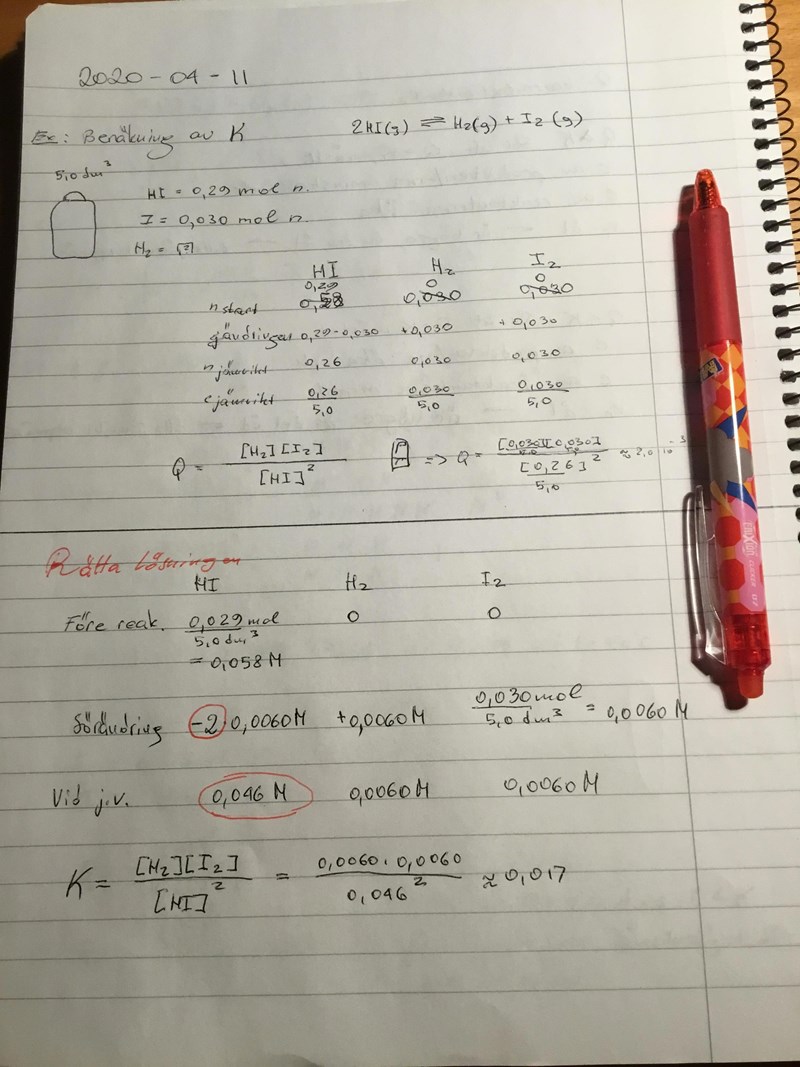 2020-04-11
Ex: Beräkning av K 2HI(g) ⇌ H₂(g) + I₂ (g)
5,0 dm³
HI = 0,29 mol n.
I = 0,030 mol n.
H₂ = [?]
HI H₂ I₂
0,29 0 0
n start 0,58 0,030 0,030
0,29-0,030 +0,030 +0,030
n jämvikt 0,26 0,030 0,030
c jämvikt 0,26/5,0 0,030/5,0 0,030/5,0
Q = [H₂][I₂]/[HI]² => Q = [0,030][0,030]/[0,26]² ≈ 2,0 10⁻³
5,0
Rätta lösningen
HI H₂ I₂
Före reak. 0,029 mol/5,0 dm³ 0 0
= 0,058 M
förändring -2 0,0060 M +0,0060 M 0,030 mol/5,0 dm³ = 0,0060 M
Vid j.v. 0,046 M 0,0060 M 0,0060 M
K = [H₂][I₂]/[HI]² = 0,0060 · 0,0060/0,046² ≈ 0,017
FRIXION
CLICKER 07